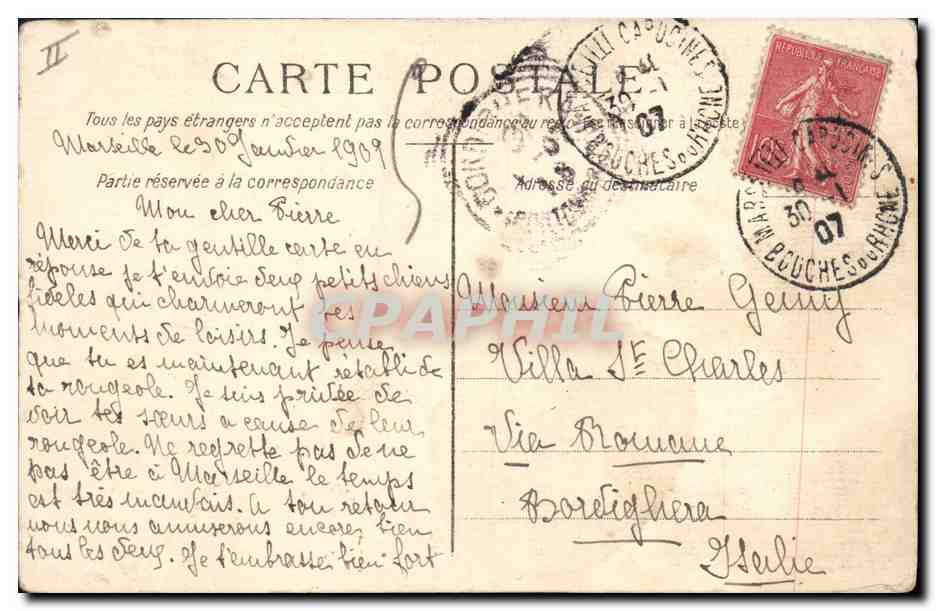 II
CARTE POSTALE
Tous les pays étrangers n'acceptent pas la correspondance au recto
Marseille le 30 Janvier 1909
Partie réservée à la correspondance
Adresse du destinataire
Mon cher Pierre
Merci de ta gentille carte en
réponse je t'envoie deux petits chiens
fidèles qui charmeront tes
moments de loisirs. Je pense
que tu es maintenant rétabli de
ta rougeole. Je suis privée de
voir tes sœurs a cause de leur
rougeole. Ne regrette pas de ne
pas être à Marseille le temps
est très mauvais. A ton retour
nous nous amuserons encore bien
tous les deux. Je t'embrasse bien fort
Monsieur Pierre Gemy
Villa St Charles
Via Romane
Bordighera
Italie
REPUBLIQUE FRANÇAISE
CAPUCINES
30 07
BOUCHES DU RHONE
MARSEILLE CAPUCINES
30 07
BOUCHES DU RHONE
CPAPHIL